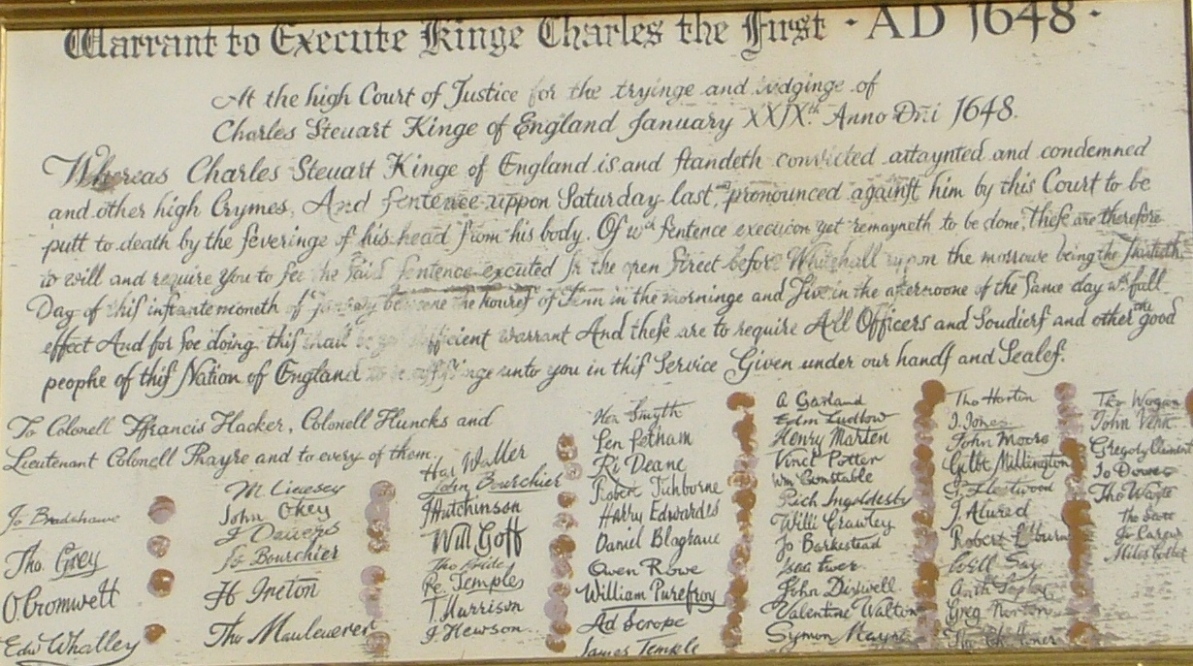 Warrant to Execute Kinge Charles the First · AD 1648 ·
At the high Court of Justice for the tryinge and iudginge of
Charles Steuart Kinge of England January XXIXth Anno Dñi 1648.
Whereas Charles Steuart Kinge of England is and standeth convicted attaynted and condemned
and other high Crymes, And sentence uppon Saturday last pronounced against him by this Court to be
putt to death by the severinge of his head from his body. Of wch sentence execucon yet remayneth to be done, These are therefore
to will and require you to see the said sentence excuted In the open Street before Whitehall uppon the morrowe being the Thirtieth
Day of this instante moneth of January betweene the houres of Tenn in the morninge and Five in the afternoone of the same day wth full
effect And for soe doing this shall be sufficient warrant And these are to require All Officers and Soudiers and other the good
peophe of this Nation of England to be assistinge unto you in this Service Given under our hands and Seales.
To Colonell Ffrancis Hacker, Colonell Huncks and
Lieutenant Colonell Phayre and to every of them.
Jo Bradshawe
Tho. Grey
O Cromwell
Edw Whalley
M Livesey
John Okey
J Dauers
Jo Bourchier
H Ireton
Tho Mauleuerer
Har Waller
John Bourchier
J Hutchinson
Will Goff
Tho Pride
Pe Temples
T Harrison
J Hewson
Hen Smyth
Pen Pelham
Ri Deane
Robert Tichborne
Harry Edwardes
Daniel Blagraue
Owen Rowe
William Purefroy
Ad Scrope
James Temple
A Garland
Edm Ludlow
Henry Marten
Vinct Potter
Wm Constable
Rich Ingoldesby
Willi Crawley
Jo Barkestead
Isaa Ewer
John Dixwell
Valentine Walton
Symon Mayne
Tho Horton
J Jones
John Moore
Gilbt Millington
G Fleetwood
J Alured
Robert Lilburn
Will Say
Greg Norton
Tho Wogan
John Venn
Gregory Clement
Jo Downes
Tho Wayte
Tho Scott
Jo Carew